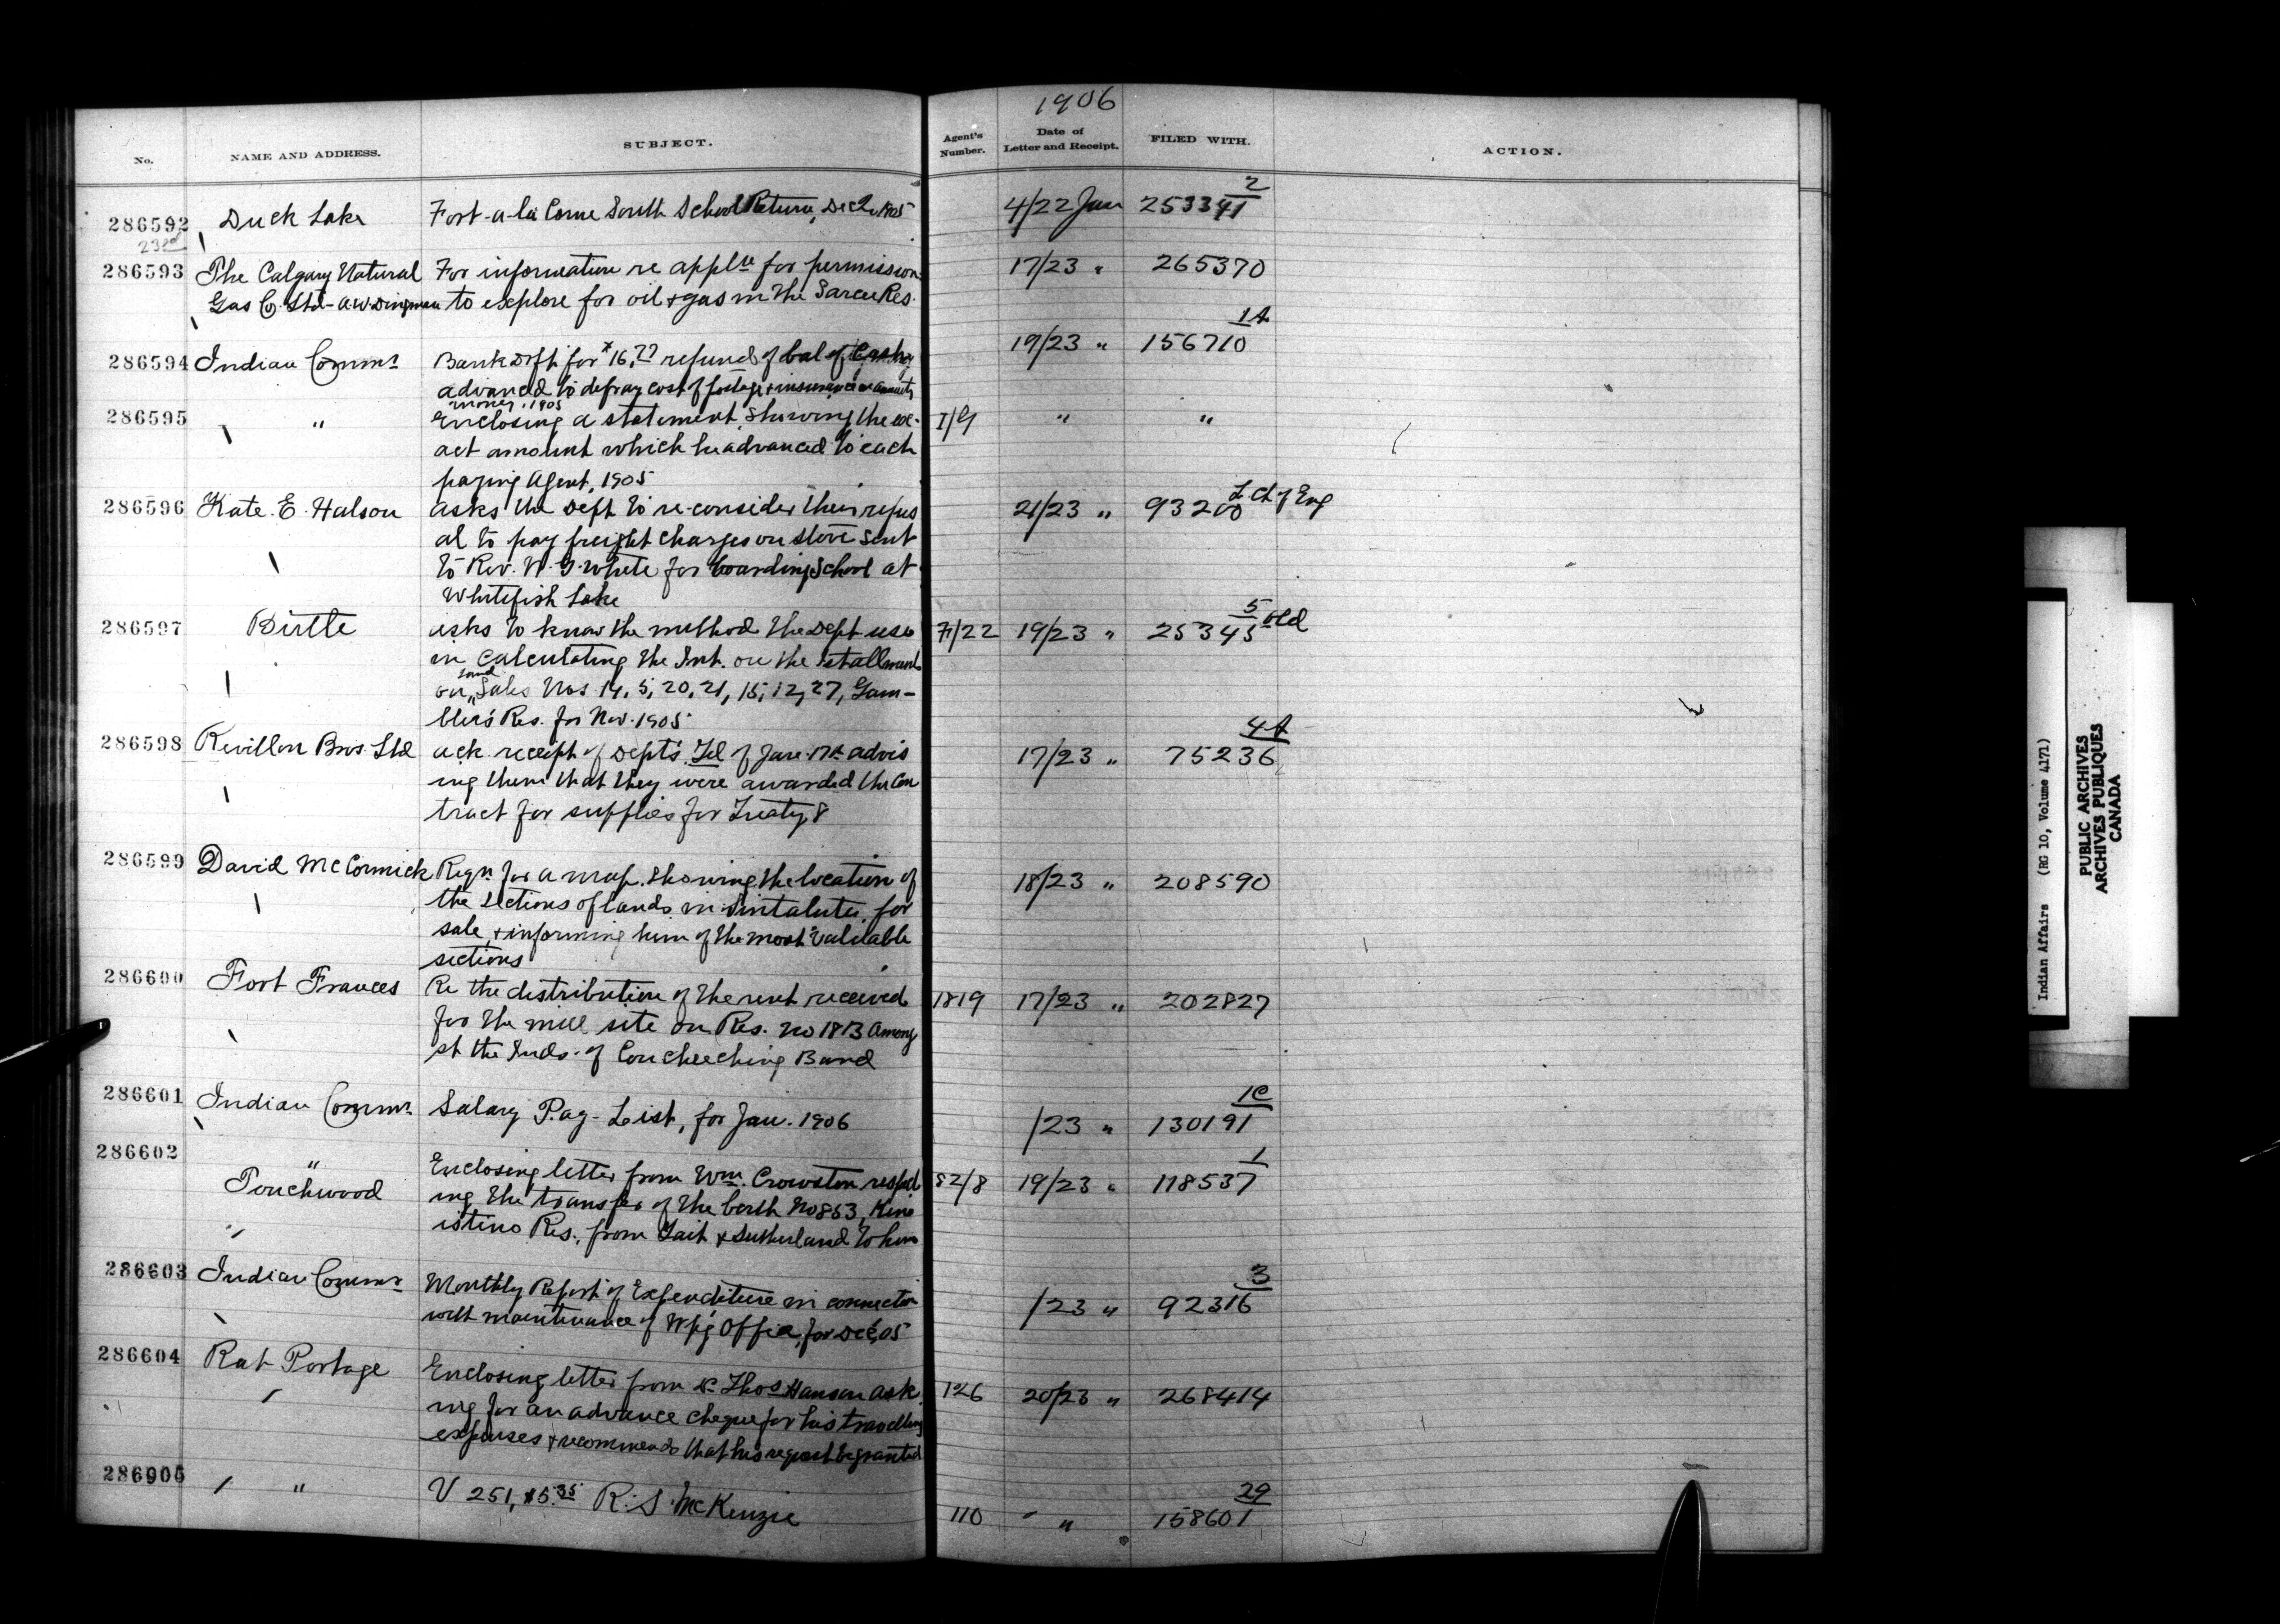 1906
No. NAME AND ADDRESS. SUBJECT. Agent's Number. Date of Letter and Receipt. FILED WITH. ACTION.
286592 Duck Lake Fort-a-la Corne South School Return, Dec 1905 4/22 Jan 253341 2
23rd
286593 The Calgary Natural For information re appl'n for permission 17/23 " 265370
Gas Co. Ltd - A.W. Dingman to explore for oil & gas in the Sarcee Res.
286594 Indian Commr Bank Dft for $16.77 refund of bal of Cash 19/23 " 156710 1A
advanced to defray cost of postage & insurance on annuity
money, 1905
286595 " Enclosing a statement, showing the ex- 1/9 " "
act amount which he advanced to each
paying Agent, 1905
286596 Kate E. Halson asks the Dept to re-consider their refus 21/23 " 93200 L Ch of Eng
al to pay freight charges on stove sent
to Rev. W. G. White for boarding School at
Whitefish Lake
286597 Birtle asks to know the method the Dept use 7/22 19/23 " 25345 5 old
in calculating the Int. on the Istallments
on land Sales Nos 14, 5, 20, 21, 15, 12, 27, Gam-
bler's Res. for Nov. 1905
286598 Revillon Bros. Ltd ack receipt of Dept's Tel of Jan. 17th advis 17/23 " 75236 4A
ing them that they were awarded the Con
tract for supplies for Treaty 8
286599 David McCormick Reqn for a map. showing the location of 18/23 " 208590
the sections of lands in Sintaluta, for
sale, & informing him of the most valuable
sections
286600 Fort Frances Re the distribution of the rent received 1819 17/23 " 202827
for the mill site on Res. No 18B among
st the Inds. of Coucheeching Band
286601 Indian Commr Salary Pay-List, for Jan. 1906 /23 " 130191 1C
286602 " Enclosing letter from Wm. Crowston respect
Touchwood ing the transfer of the berth No 853, Kin 82/8 19/23 " 118537 1
istino Res., from Tait & Sutherland to him
286603 Indian Commr Monthly Report of Expenditure in connection /23 " 92316 3
with maintenance of W'p'g Office, for Dec, 05
286604 Rat Portage Enclosing letter from Dr Thos Hanson ask 126 20/23 " 268414
ing for an advance cheque for his travelling
expenses & recommends that his request be granted
286605 " V 251, $15.35 R. S. McKenzie 110 " 158601 29
Indian Affairs (RG 10, Volume 4171)
PUBLIC ARCHIVES
ARCHIVES PUBLIQUES
CANADA